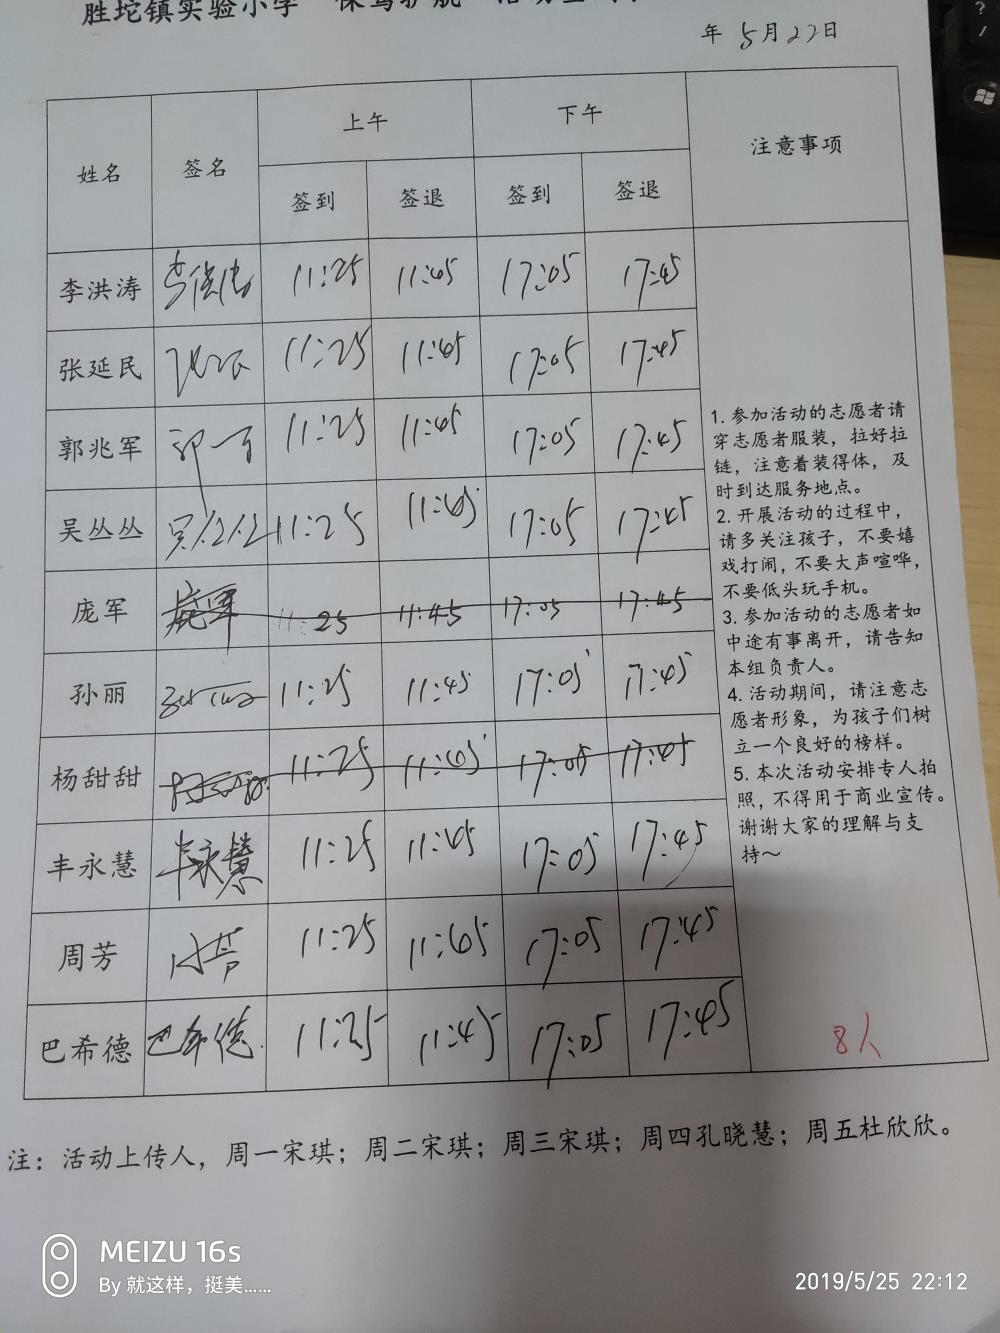 胜坨镇实验小学"保驾护航"活动
年 5月22日
姓名 签名 上午 下午 注意事项
签到 签退 签到 签退
李洪涛 李洪涛 11:25 11:45 17:05 17:45
张延民 11:25 11:45 17:05 17:45
郭兆军 11:25 11:45 17:05 17:45
吴丛丛 吴丛丛 11:25 11:45 17:05 17:45
庞军 庞军 11:25 11:45 17:05 17:45
孙丽 11:25 11:45 17:05 17:45
杨甜甜 11:25 11:45 17:05 17:45
丰永慧 丰永慧 11:25 11:45 17:05 17:45
周芳 周芳 11:25 11:45 17:05 17:45
巴希德 巴希德 11:25 11:45 17:05 17:45
1. 参加活动的志愿者请
穿志愿者服装，拉好拉
链，注意着装得体，及
时到达服务地点。
2. 开展活动的过程中，
请多关注孩子，不要嬉
戏打闹，不要大声喧哗，
不要低头玩手机。
3. 参加活动的志愿者如
中途有事离开，请告知
本组负责人。
4. 活动期间，请注意志
愿者形象，为孩子们树
立一个良好的榜样。
5. 本次活动安排专人拍
照，不得用于商业宣传。
谢谢大家的理解与支
持～
8人
注：活动上传人，周一宋琪；周二宋琪；周三宋琪；周四孔晓慧；周五杜欣欣。
MEIZU 16s
By 就这样，挺美......
2019/5/25 22:12